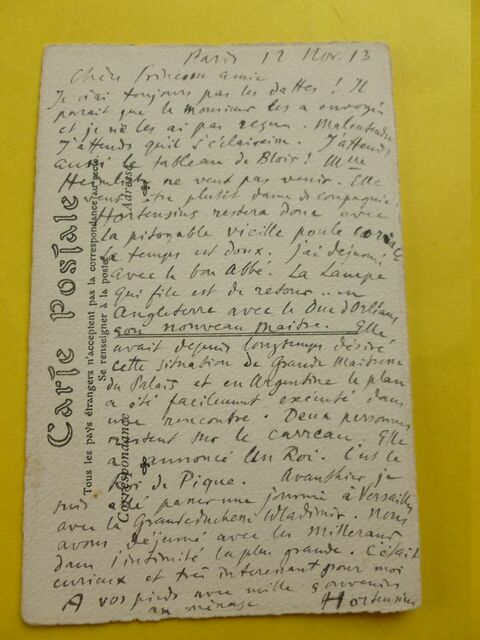 Paris 12 Nov. 13
Chère Princesse amie
Je n'ai toujours pas les dattes ! Il
parait que le Monsieur les a envoyées
et je ne les ai pas reçues. Malentendu
J'attends qu'il s'éclaircisse. J'attends
aussi le tableau de Blois ! Mme
ne veut pas venir. Elle
veut être plutôt dame de compagnie.
Hortensius restera donc avec
la pitoyable vieille poule
le temps est doux. J'ai déjeuné
avec le bon Abbé. La Lampe
qui file est de retour ... en
Angleterre avec le Duc d'Orléans
son nouveau maitre. Elle
avait depuis longtemps désiré
cette situation de Grande Maitresse
du Palais et en Argentine le plan
a été facilement exécuté dans
une rencontre. Deux personnes
restent sur le carreau. Elle
a annoncé un Roi. C'est le
Roi de Pique. Avanthier je
suis allé passer une journée à Versailles
avec la Grandeduchesse Wladimir. Nous
avons déjeuné avec les Millerand
dans l'intimité la plus grande. C'était
curieux et très intéressant pour moi
A vos pieds avec mille souvenirs
au ménage Hortensius
Carte Postale
Tous les pays étrangers n'acceptent pas la correspondance au recto.
Se renseigner à la poste
Correspondance
Adresse